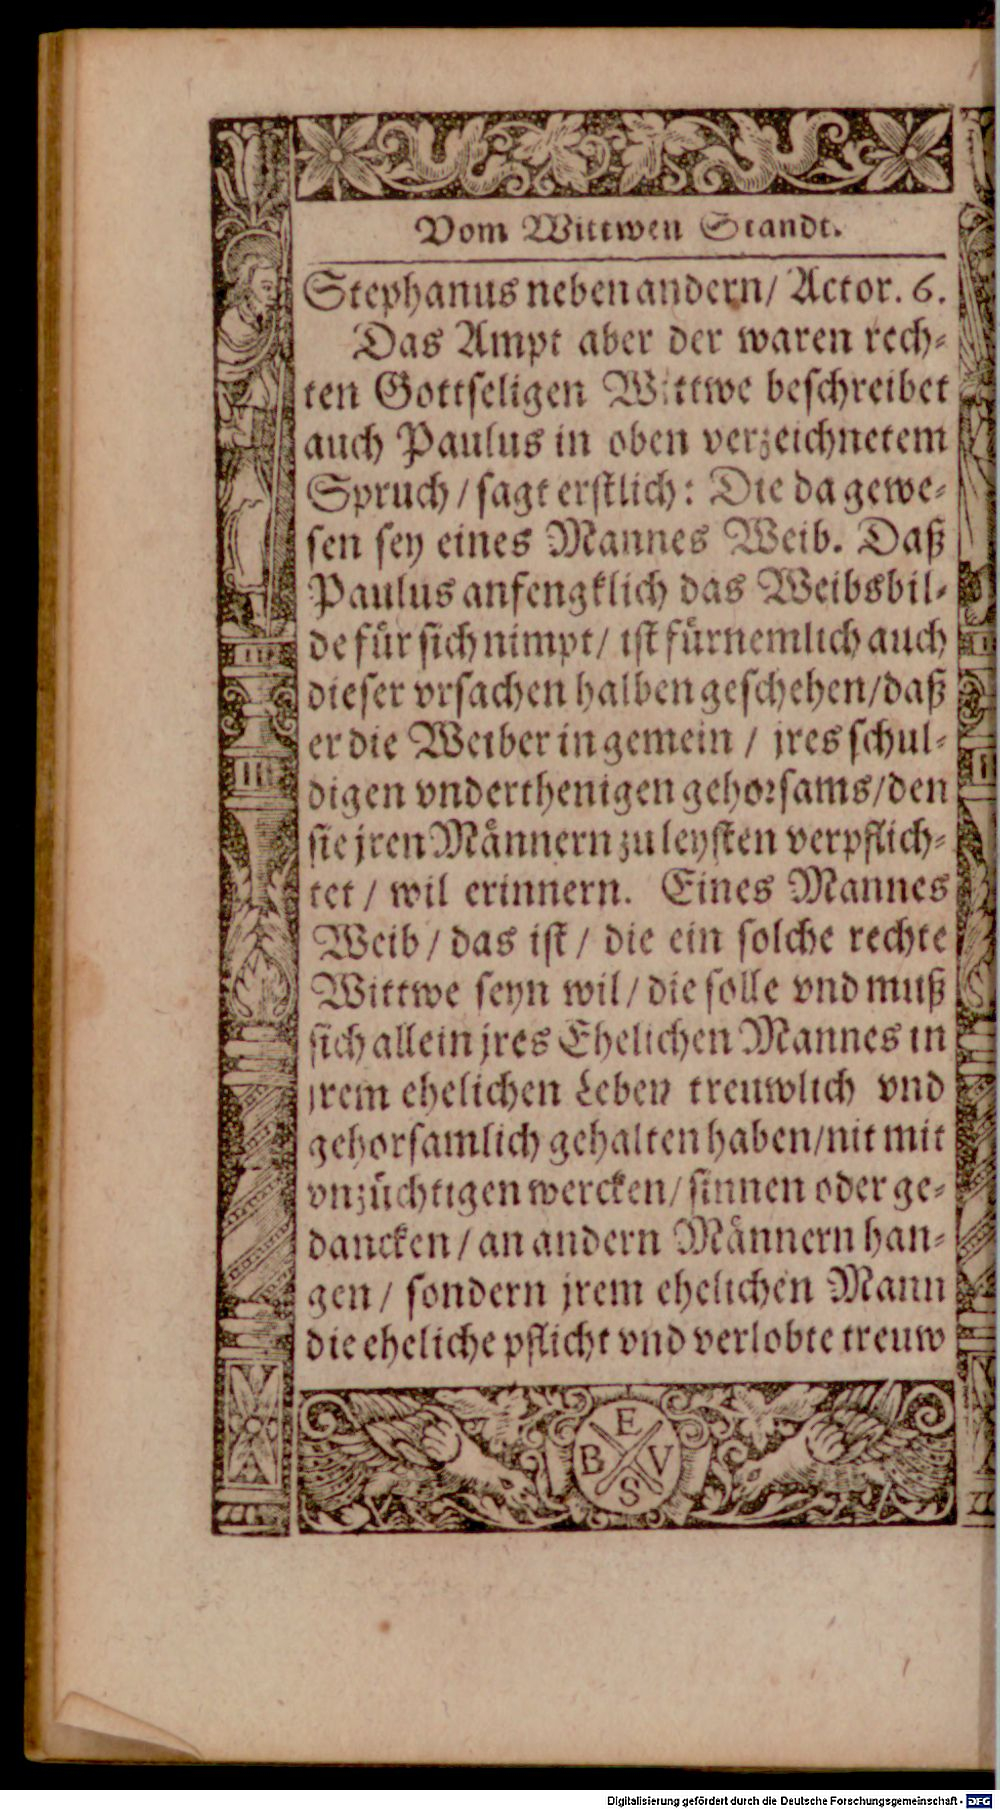 Vom Wittwen Standt.
Stephanus neben andern/ Actor. 6.
Das Ampt aber der waren rech⸗
ten Gottseligen Wittwe beschreibet
auch Paulus in oben verzeichnetem
Spruch/ sagt erstlich: Die da gewe⸗
sen sey eines Mannes Weib. Daß
Paulus anfengklich das Weibsbil⸗
de für sich nimpt/ ist fürnemlich auch
dieser vrsachen halben geschehen/ daß
er die Weiber in gemein/ jres schul⸗
digen vnderthenigen gehorsams/ den
sie jren Männern zu leysten verpflich⸗
tet/ wil erinnern. Eines Mannes
Weib/ das ist/ die ein solche rechte
Wittwe seyn wil/ die solle vnd muß
sich allein jres Ehelichen Mannes in
jrem ehelichen Leben treuwlich vnd
gehorsamlich gehalten haben/ nit mit
vnzüchtigen wercken/ sinnen oder ge⸗
dancken/ an andern Männern han⸗
gen/ sondern jrem ehelichen Mann
die eheliche pflicht vnd verlobte treuw
E
B V
S
Digitalisierung gefördert durch die Deutsche Forschungsgemeinschaft - DFG